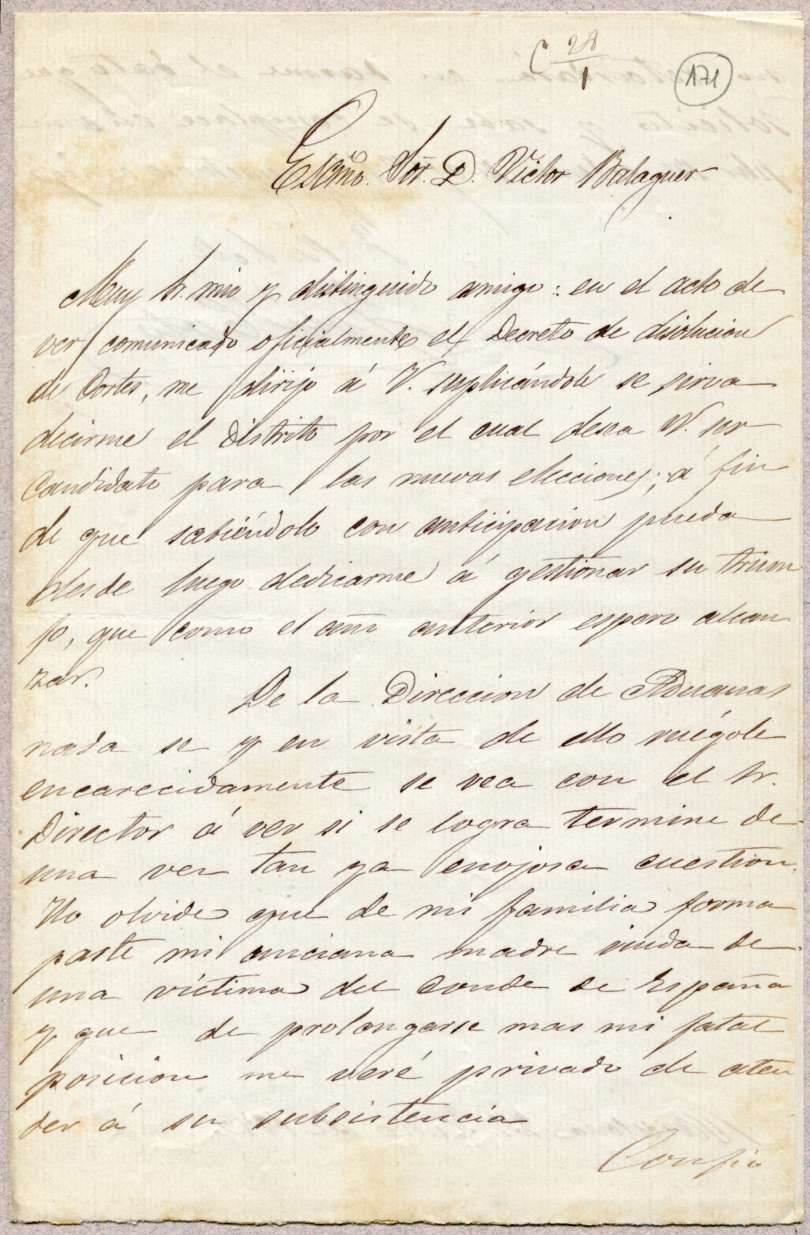 C 28/1
171
Escmo. Sor. D. Victor Balaguer
Muy Sr. mio y distinguido amigo: en el acto de
ver comunicado oficialmente el Decreto de disolucion
de Cortes, me dirijo á V. suplicándole se sirva
decirme el Distrito por el cual desea V. ser
candidato para las nuevas elecciones; á fin
de que sabiéndolo con anticipacion pueda
desde luego dedicarme á gestionar su triun
fo, que como el año anterior espero alcan
zar.
De la Direccion de Aduanas
nada se y en vista de ello ruégole
encarecidamente se vea con el Sr.
Director á ver si se logra termine de
una vez tan ya enojosa cuestion.
No olvide que de mi familia forma
parte mi anciana madre viuda de
una víctima del Conde de España
y que de prolongarse mas mi fatal
posicion me veré privado de aten
der á su subsistencia
Confio